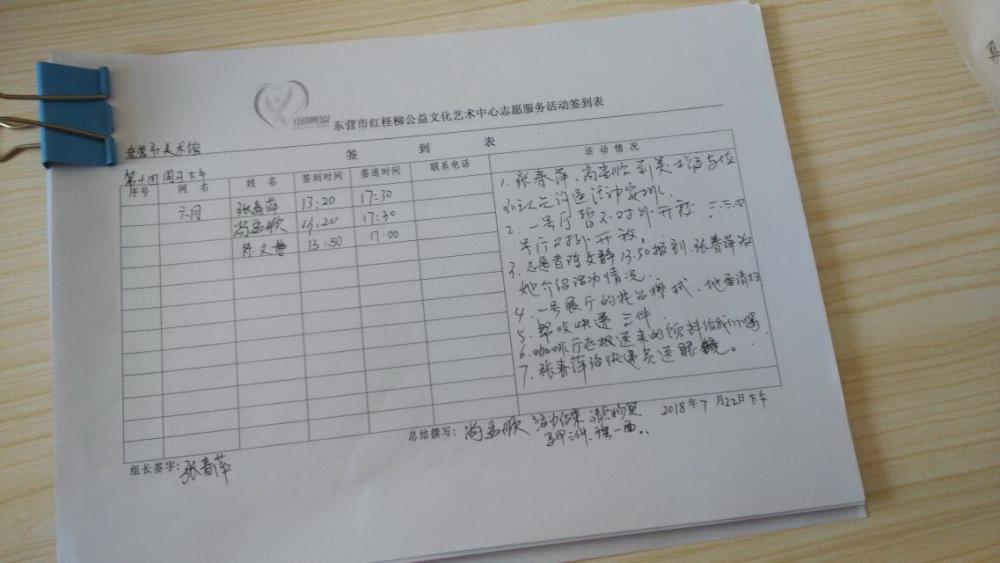 东营市红柽柳公益文化艺术中心志愿服务活动签到表
东营市美术馆
第十周周日下午
签 到 表
活动情况
序号 网名 姓名 签到时间 签退时间 联系电话
六月 张春萍 13:20 17:30
尚孟顺 13:20 17:30
陈文静 13:50 17:00
1. 张春萍、尚孟顺到美术馆与
活动安排
2. 一号厅暂不对外开放 二三四
号厅对外开放。
3. 志愿者陈文静13.50报到.张春萍为
她介绍活动情况.
4. 一号展厅的展台擦拭.地面清扫
5. 帮收快递三件.
6. 咖啡厅老板送来的饮料给我们喝
7. 张春萍给快递员送眼镜。
总结撰写: 尚孟顺 活动结束 清点物品
马甲三件,旗一面。
2018年7月22日下午
组长签字: 张春萍